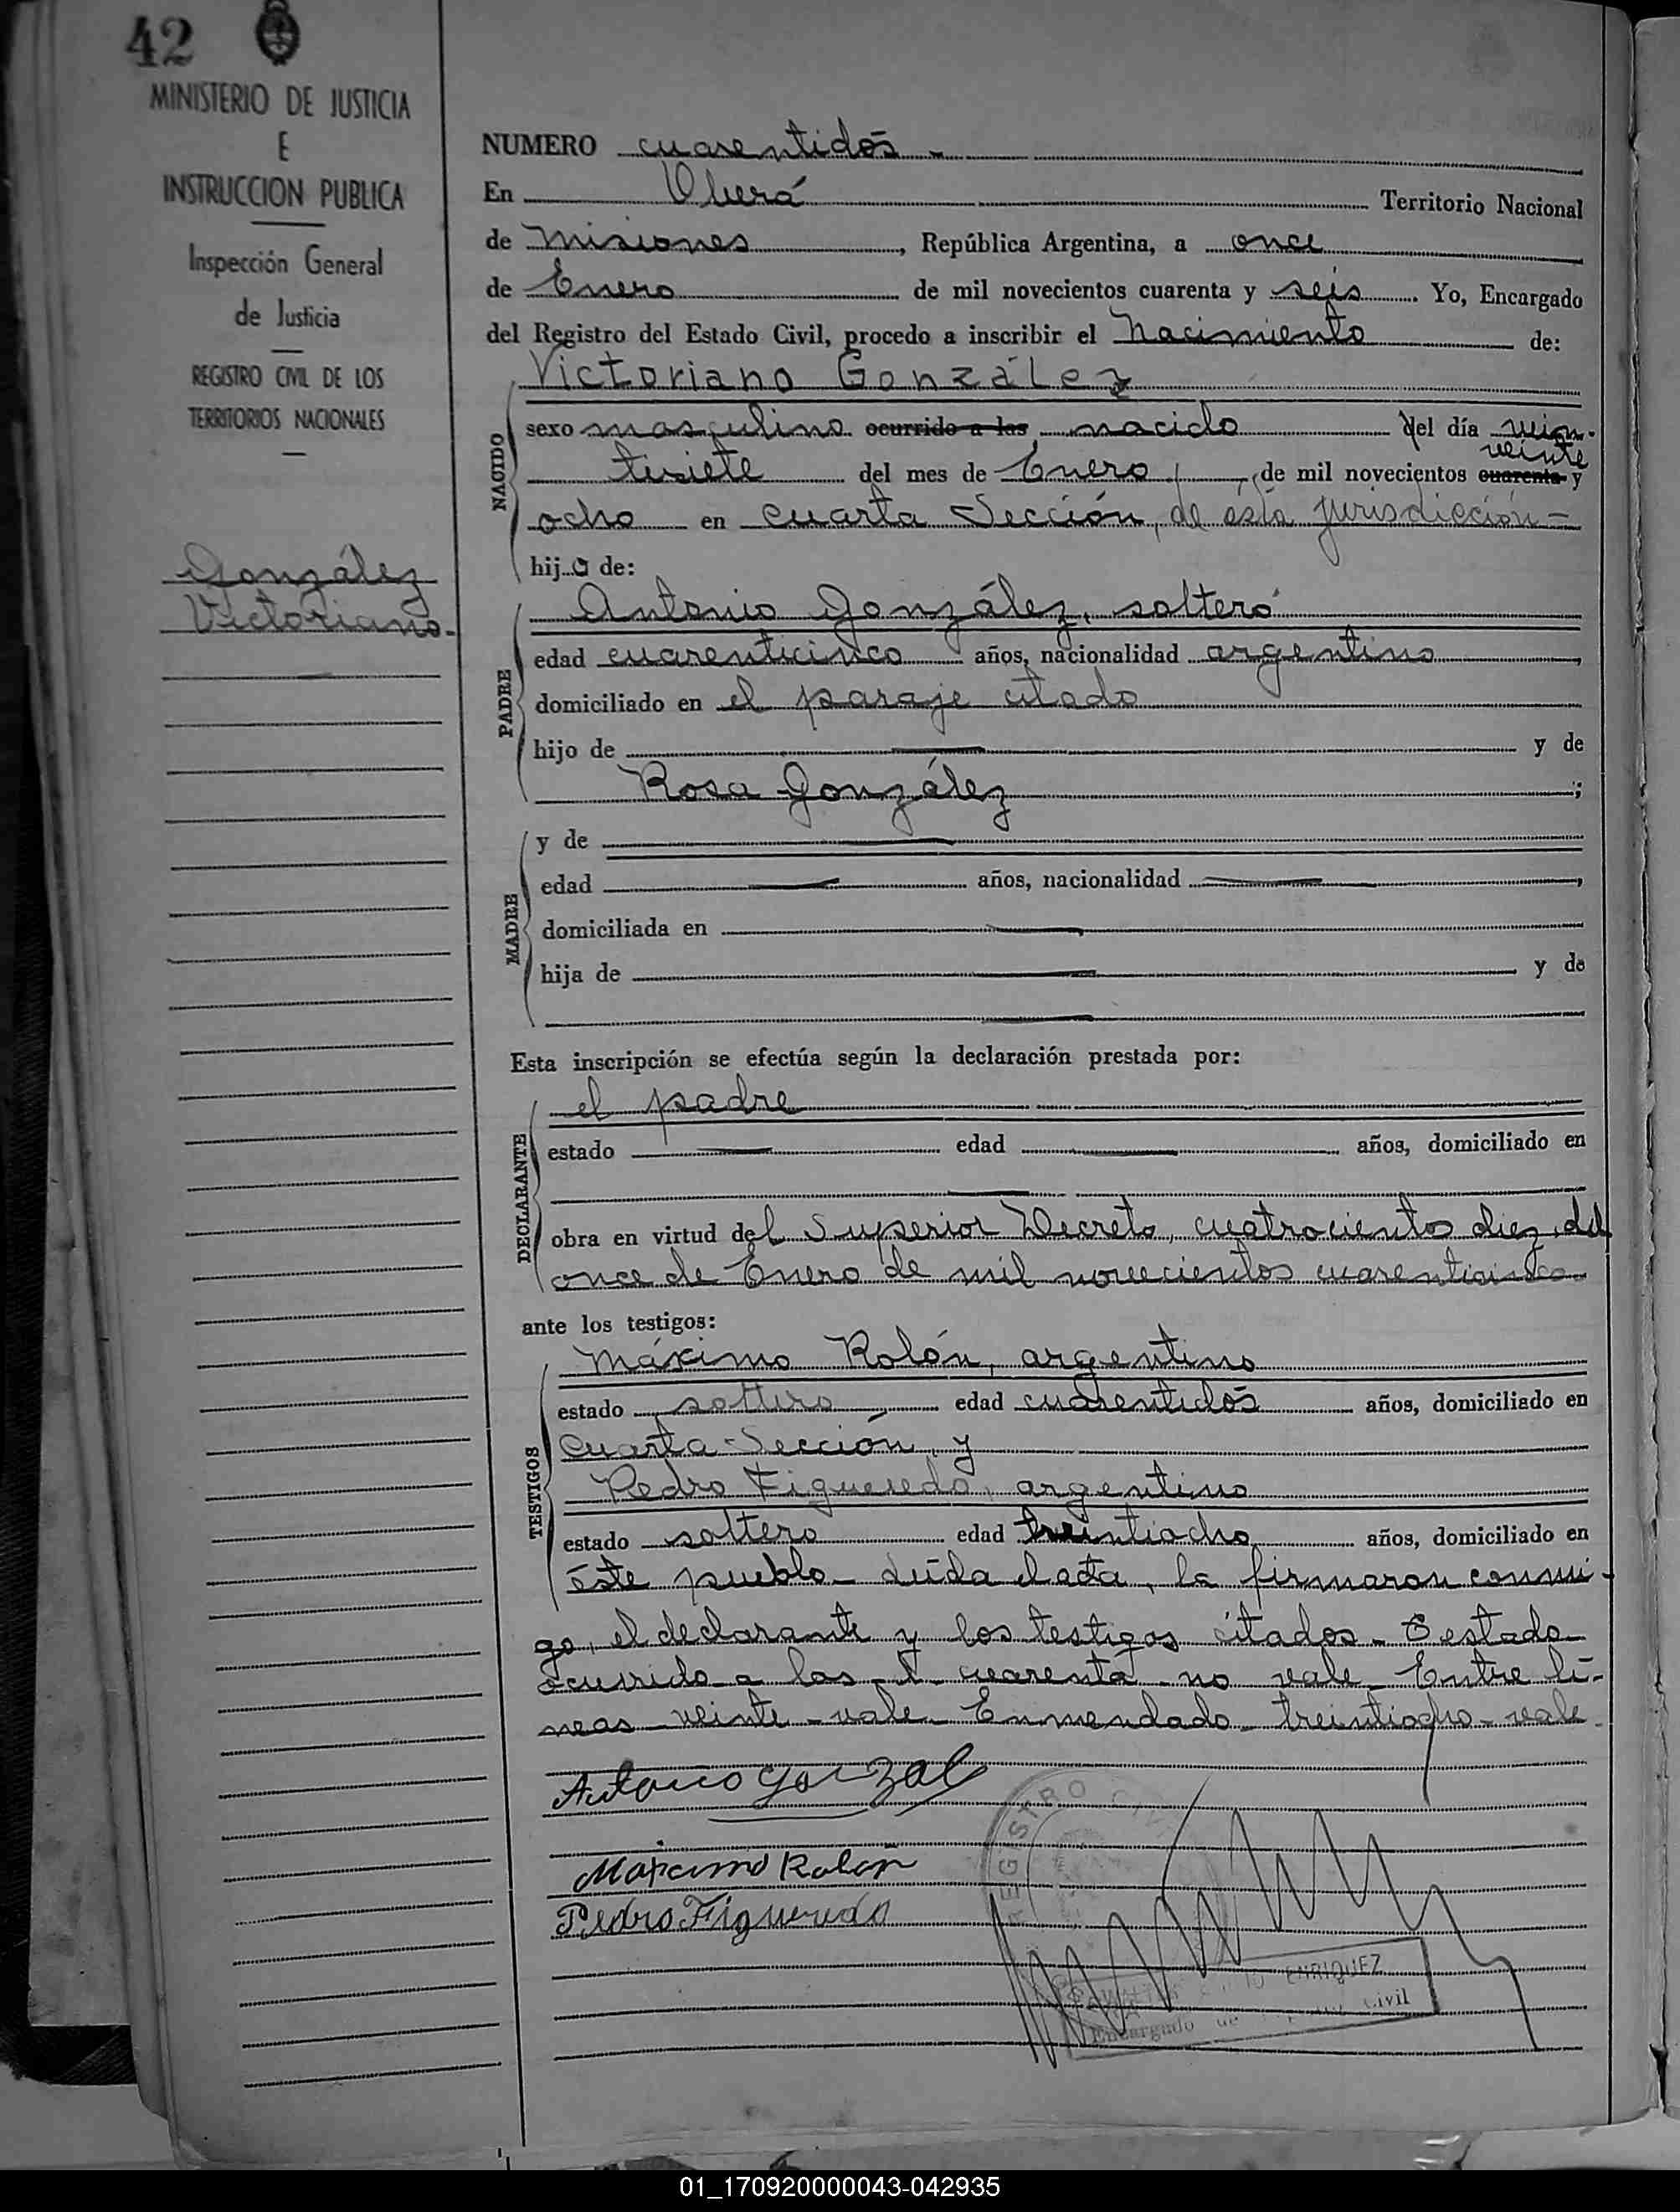 42
MINISTERIO DE JUSTICIA
E
INSTRUCCION PUBLICA
Inspección General
de Justicia
REGISTRO CIVIL DE LOS
TERRITORIOS NACIONALES
González
Victoriano.-
NUMERO cuarentidós -
En Oberá Territorio Nacional
de Misiones, República Argentina, a once
de Enero de mil novecientos cuarenta y seis. Yo, Encargado
del Registro del Estado Civil, procedo a inscribir el Nacimiento de:
Victoriano González
NACIDO
sexo masculino ocurrido a las nacido del día vein-
veinte
tisiete del mes de Enero, de mil novecientos cuarenta y
ocho en cuarta Sección, de ésta jurisdicción -
hijo de:
PADRE
Antonio González, soltero
edad cuarenticinco años, nacionalidad argentino
domiciliado en el paraje citado
hijo de y de
Rosa González ;
MADRE
y de
edad años, nacionalidad ,
domiciliada en
hija de y de
Esta inscripción se efectúa según la declaración prestada por:
DECLARANTE
el padre
estado edad años, domiciliado en
obra en virtud del Superior Decreto, cuatrociento diez, del
once de Enero de mil novecientos cuarenticinco-
ante los testigos:
TESTIGOS
Máximo Rolón, argentino
estado soltero edad cuarentidós años, domiciliado en
Cuarta Sección, y
Pedro Figueredo, argentino
estado soltero edad treintiocho años, domiciliado en
éste pueblo - Leída el acta, la firmaron conmi-
go, el declarante y los testigos citados - Testado
ocurrido a las - l - cuarenta - no vale - Entre lí-
neas - veinte - vale - Enmendado - treintiocho - vale -
Antonio Gonzal
Maximo Rolon
Pedro Figueredo
REGISTRO CIVIL
ENRIQUEZ
Encargado de Civil
01_170920000043-042935